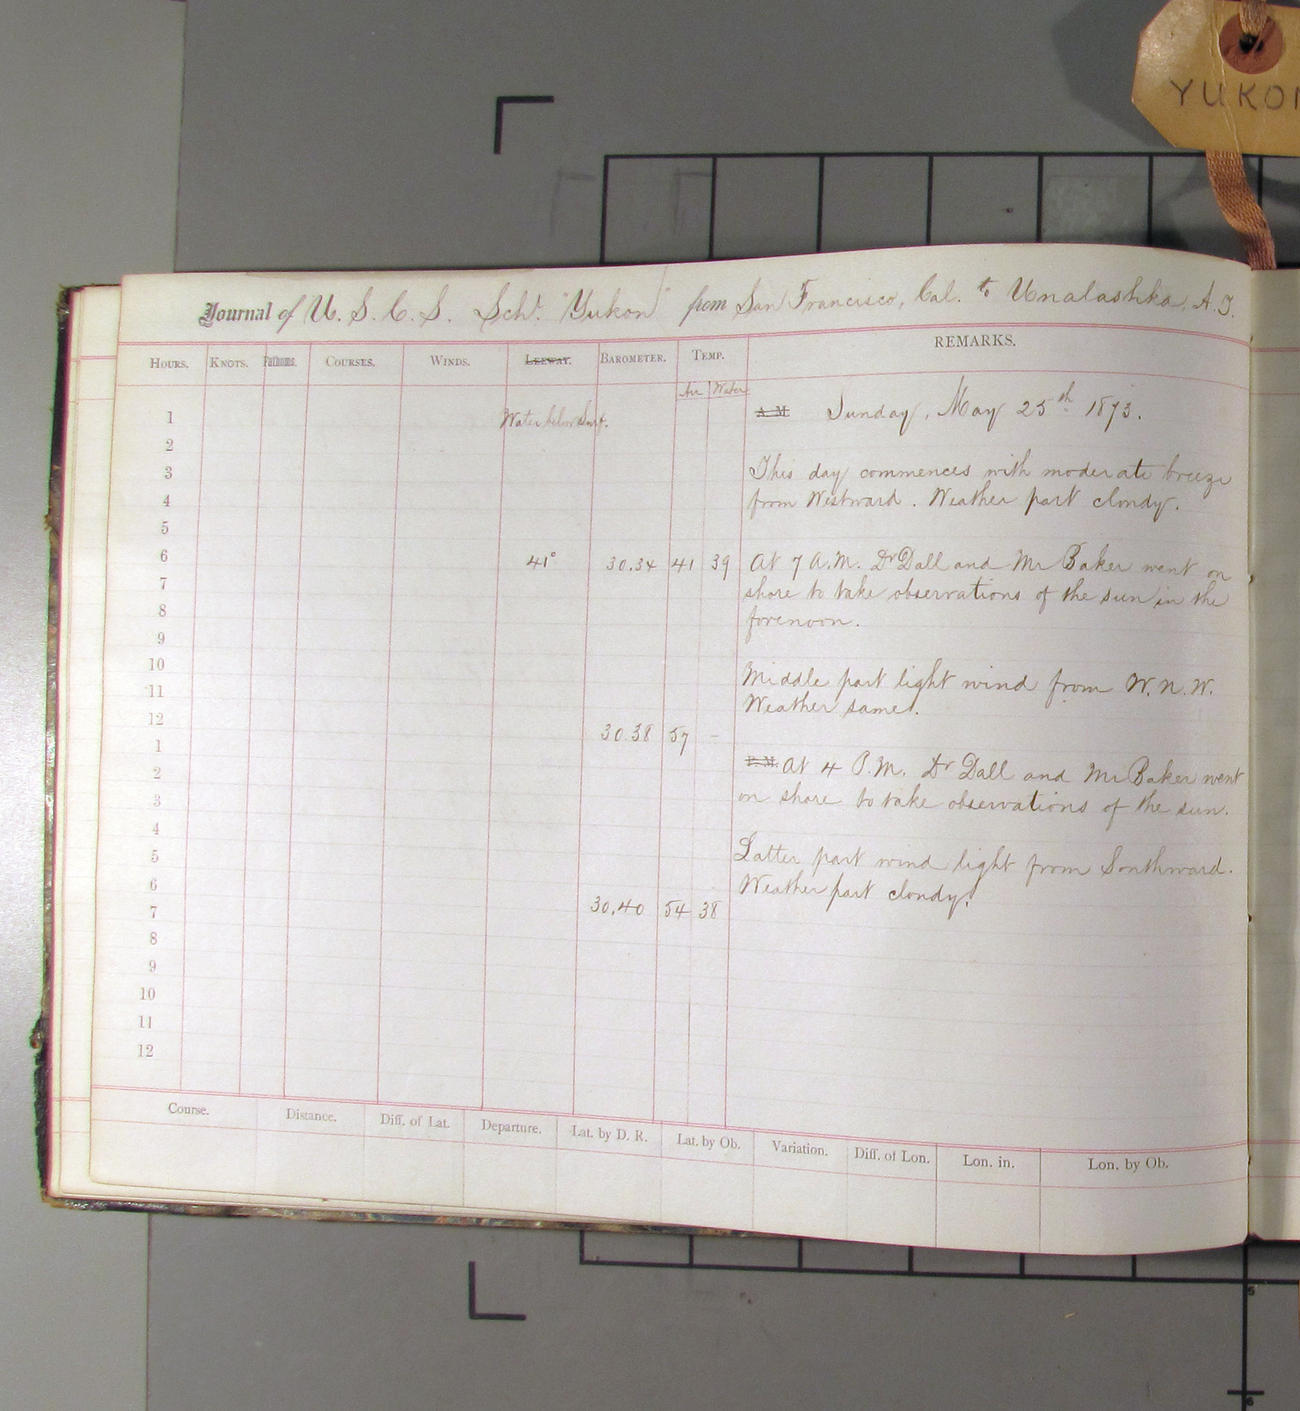 YUKON
Journal of U. S. C. S. Schr. "Yukon" from San Francisco, Cal. to Unalashka, A. T.
HOURS. KNOTS. Fathoms. COURSES. WINDS. LEEWAY. BAROMETER. TEMP. REMARKS.
Air Water
1 Water below Surf. A.M. Sunday, May 25th 1873.
2
3 This day commences with moderate breeze
4 from Westward. Weather part cloudy.
5
6 41° 30.34 41 39 At 7 A.M. Dr Dall and Mr Baker went on
7 shore to take observations of the sun in the
8 forenoon.
9
10 Middle part light wind from W.N.W.
11 Weather same.
12 30.38 57 -
1 P.M. At 4 P.M. Dr Dall and Mr Baker went
2 on shore to take observations of the sun.
3
4 Latter part wind light from Southward.
5 Weather part cloudy.
6
7 30.40 54 38
8
9
10
11
12
Course. Distance. Diff. of Lat. Departure. Lat. by D. R. Lat. by Ob. Variation. Diff. of Lon. Lon. in. Lon. by Ob.
5
6